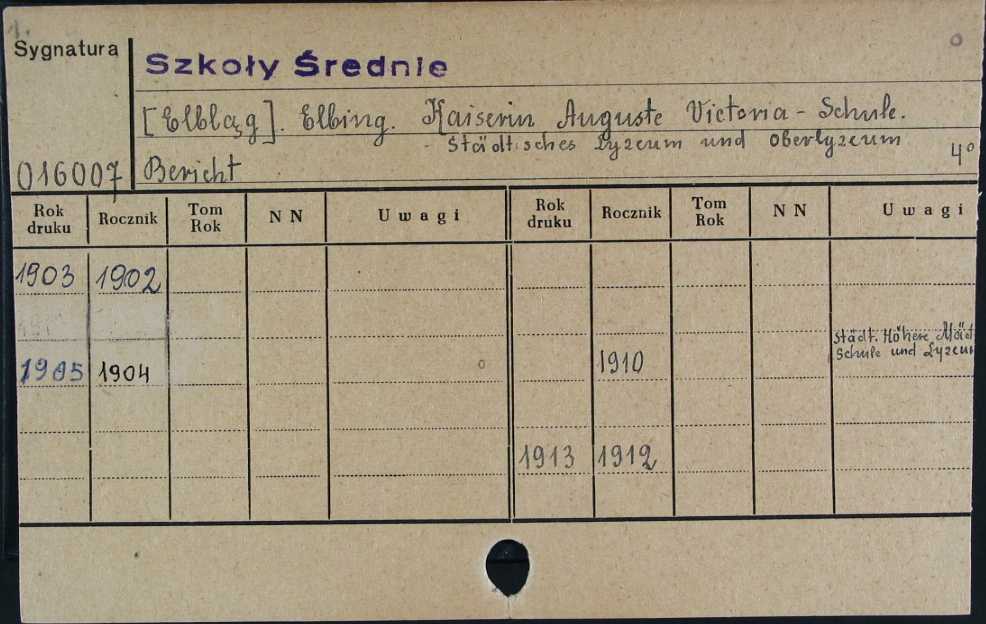 Sygnatura
Szkoły Średnie
[Elbląg]. Elbing. Kaiserin Auguste Victoria - Schule.
- Städtisches Lyzeum und Oberlyzeum
016007 Bericht 4°
Rok druku Rocznik Tom Rok NN Uwagi Rok druku Rocznik Tom Rok NN Uwagi
1903 1902
Städt. Höhere Mäd
1905 1904 1910 Schule und Lyzeum
1913 1912